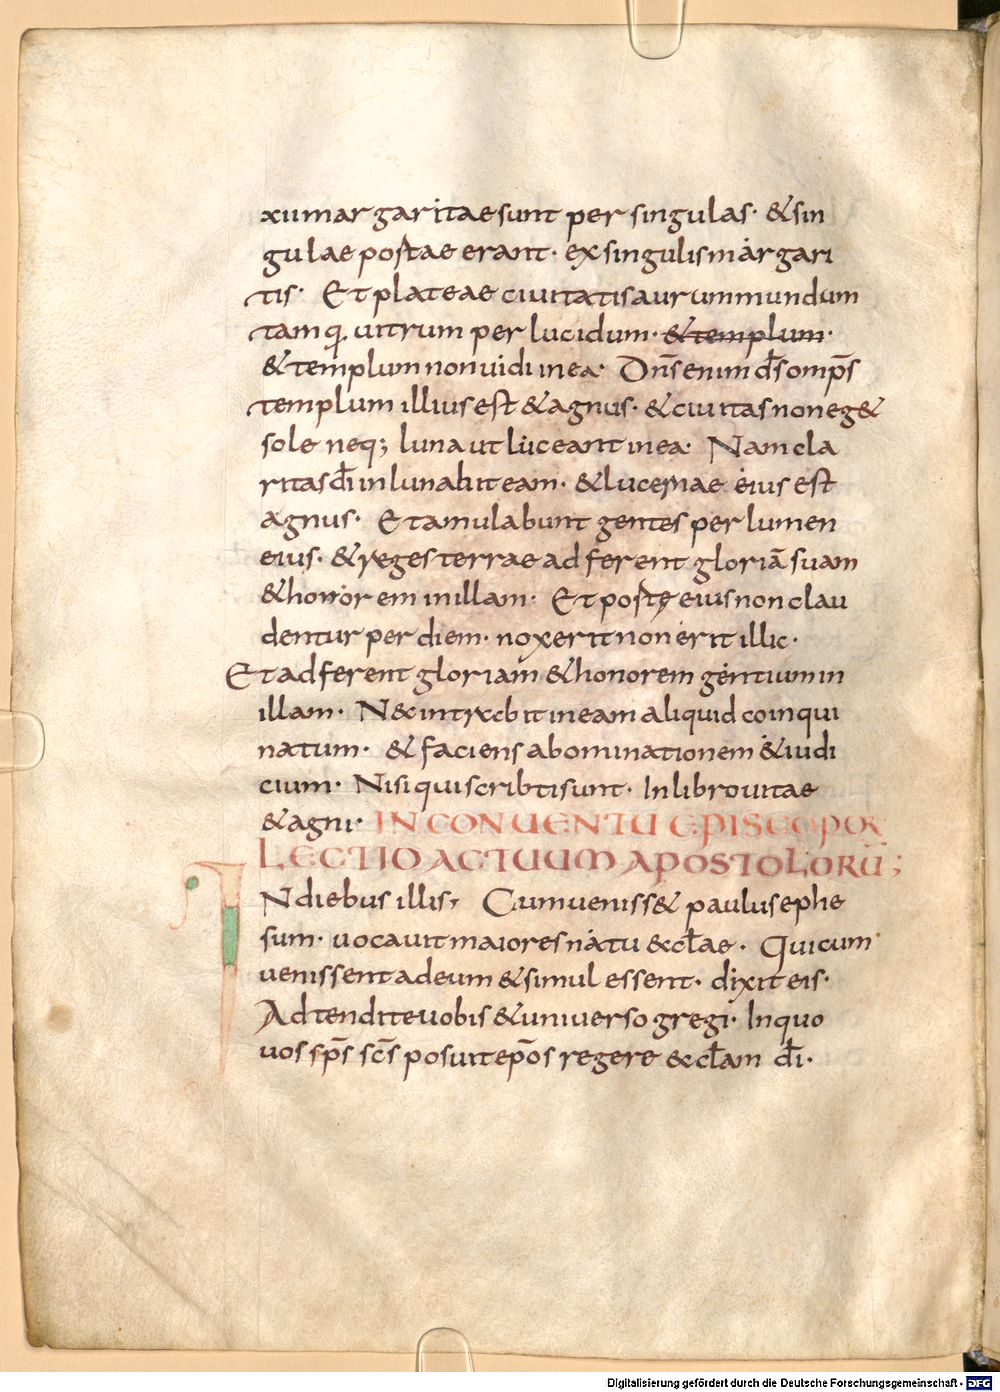 xii margaritae sunt per singulas· & sin
gulae postae erant· ex singulis margari
tis· Et plateae ciuitatis aurum mundum
tamq̄ uitrum perlucidum· & templum·
& templum non uidi in ea· Dn̄s enim d̄s omp̄s
templum illius est & agnus· & ciuitas non eg&
sole neq; luna ut luceant in ea· Nam cla
ritas d̄i inlunabit eam· & lucernae eius est
agnus· Et amulabunt gentes per lumen
eius· & reges terrae adferent gloriā suam
& honorem in illam· Et postę eius non clau
dentur per diem· nox erit non erit illic·
Et adferent gloriam & honorem gentium in
illam· Nec intrabit in eam aliquid coinqui
natum· & faciens abominationem & iudi
cium· Nisi qui scribti sunt· In libro uitae
& agni· IN CONUENTU EPISCOPOR
LECTIO ACTUUM APOSTOLORŪ;
IN diebus illis, Cum ueniss& paulus ephe
sum· uocauit maiores natu eccl̄ae· Qui cum
uenissent ad eum & simul essent· dixit eis·
Adtendite uobis & uniuerso gregi· In quo
uos sp̄s sc̄s posuit ep̄os regere eccl̄am d̄i·
Digitalisierung gefördert durch die Deutsche Forschungsgemeinschaft - DFG